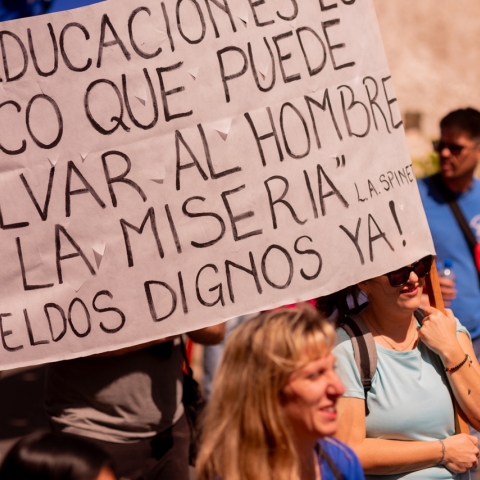 EDUCACION ES LO
CO QUE PUEDE
LVAR AL HOMBRE
LA MISERIA" L.A. SPINET
ELDOS DIGNOS YA!